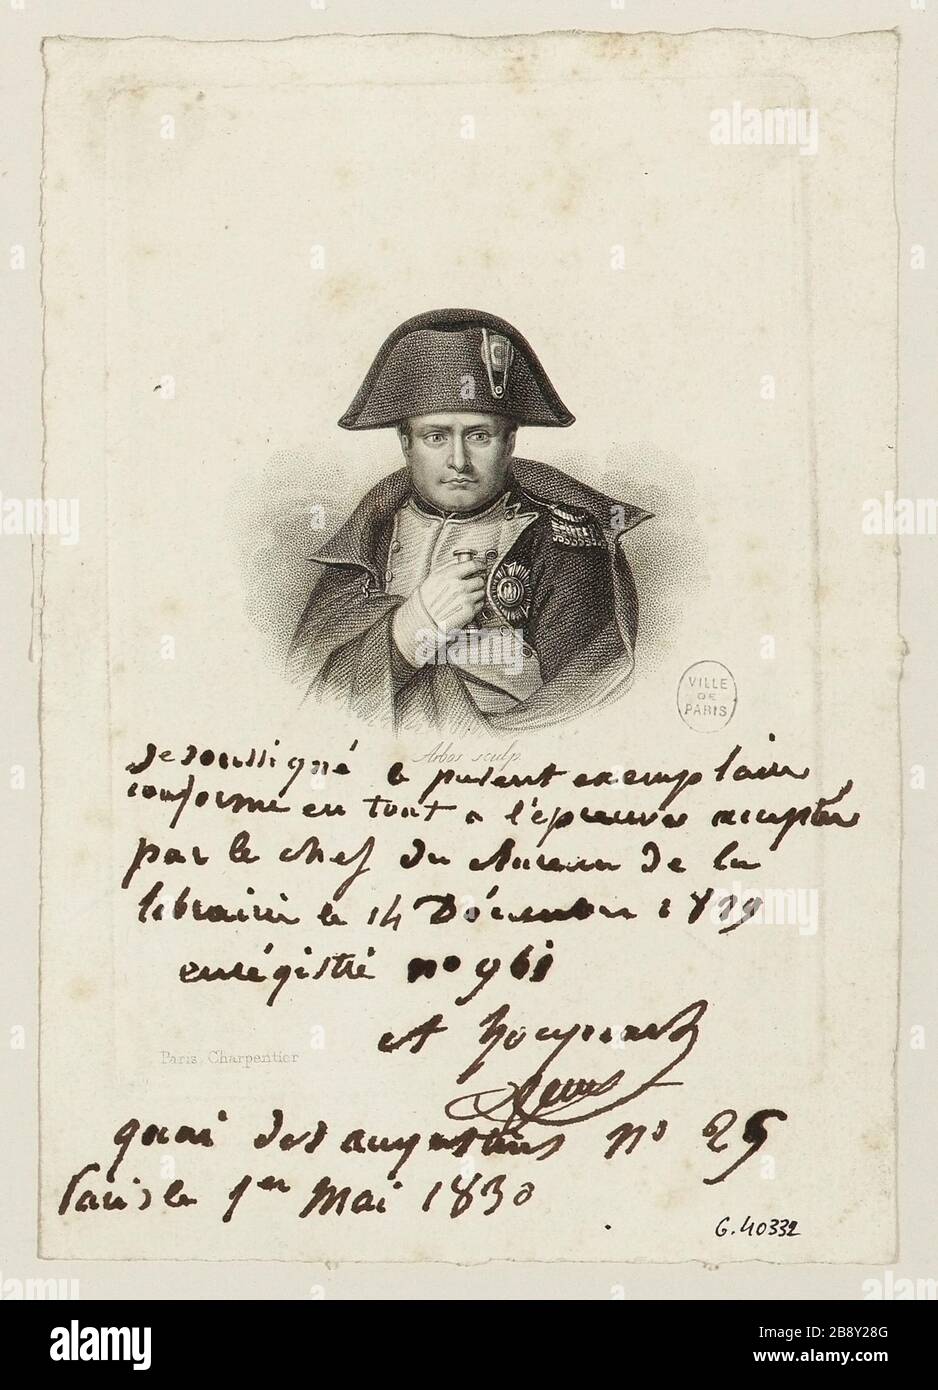 VILLE
DE
PARIS
Arbos sculp.
Je soussigné le présent exemplaire
conforme en tout a l'épreuve acceptée
par le chef du Bureau de la
librairie le 14 Décembre 1829
enrégistré no 961
Paris, Charpentier
quai des augustins no 25
Paris le 1er Mai 1830
G.40332
alamy
Image ID: 2B8Y28G
www.alamy.com